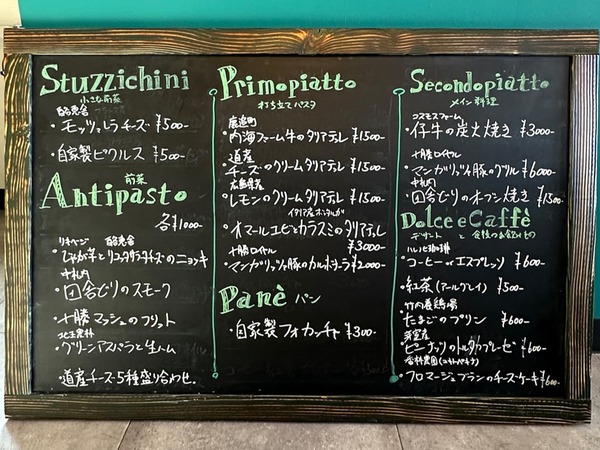 Stuzzichini
小さな前菜
酪恵舎
・モッツァレラチーズ ¥500-
・自家製ピクルス ¥500-
Antipasto
前菜
各¥1000-
酪恵舎
・じゃが芋とリコッタサラダチーズのニョッキ
中札内
・田舎どりのスモーク
・十勝マッシュのフリット
・グリーンアスパラと生ハム
・道産チーズ5種盛り合わせ。
Primopiatto
打ち立てパスタ
鹿追町
・内海ファーム牛のタリアテレ ¥1500-
道産
・チーズのクリームタリアテレ ¥1500-
広島県産
・レモンのクリームタリアテレ ¥1500-
・オマールエビとカラスミのタリアテレ
¥3000-
十勝ロイヤル
・マンガリッツァ豚のカルボナーラ ¥2000-
Panè パン
・自家製フォカッチャ ¥300-
Secondopiatto
メイン料理
コスモスファーム
・仔牛の炭火焼き ¥3000-
十勝ロイヤル
・マンガリッツァ豚のグリル ¥6000-
中札内
・田舎どりのオーブン焼き ¥1500-
Dolce e Caffè
デザート と 食後のお飲みもの
・コーヒー or エスプレッソ ¥600-
・紅茶(アールグレイ) ¥500-
竹内養鶏場
・たまごのプリン ¥600-
・ピーナッツのトルタカプレーゼ ¥600-
・フロマージュブランのチーズケーキ ¥600-